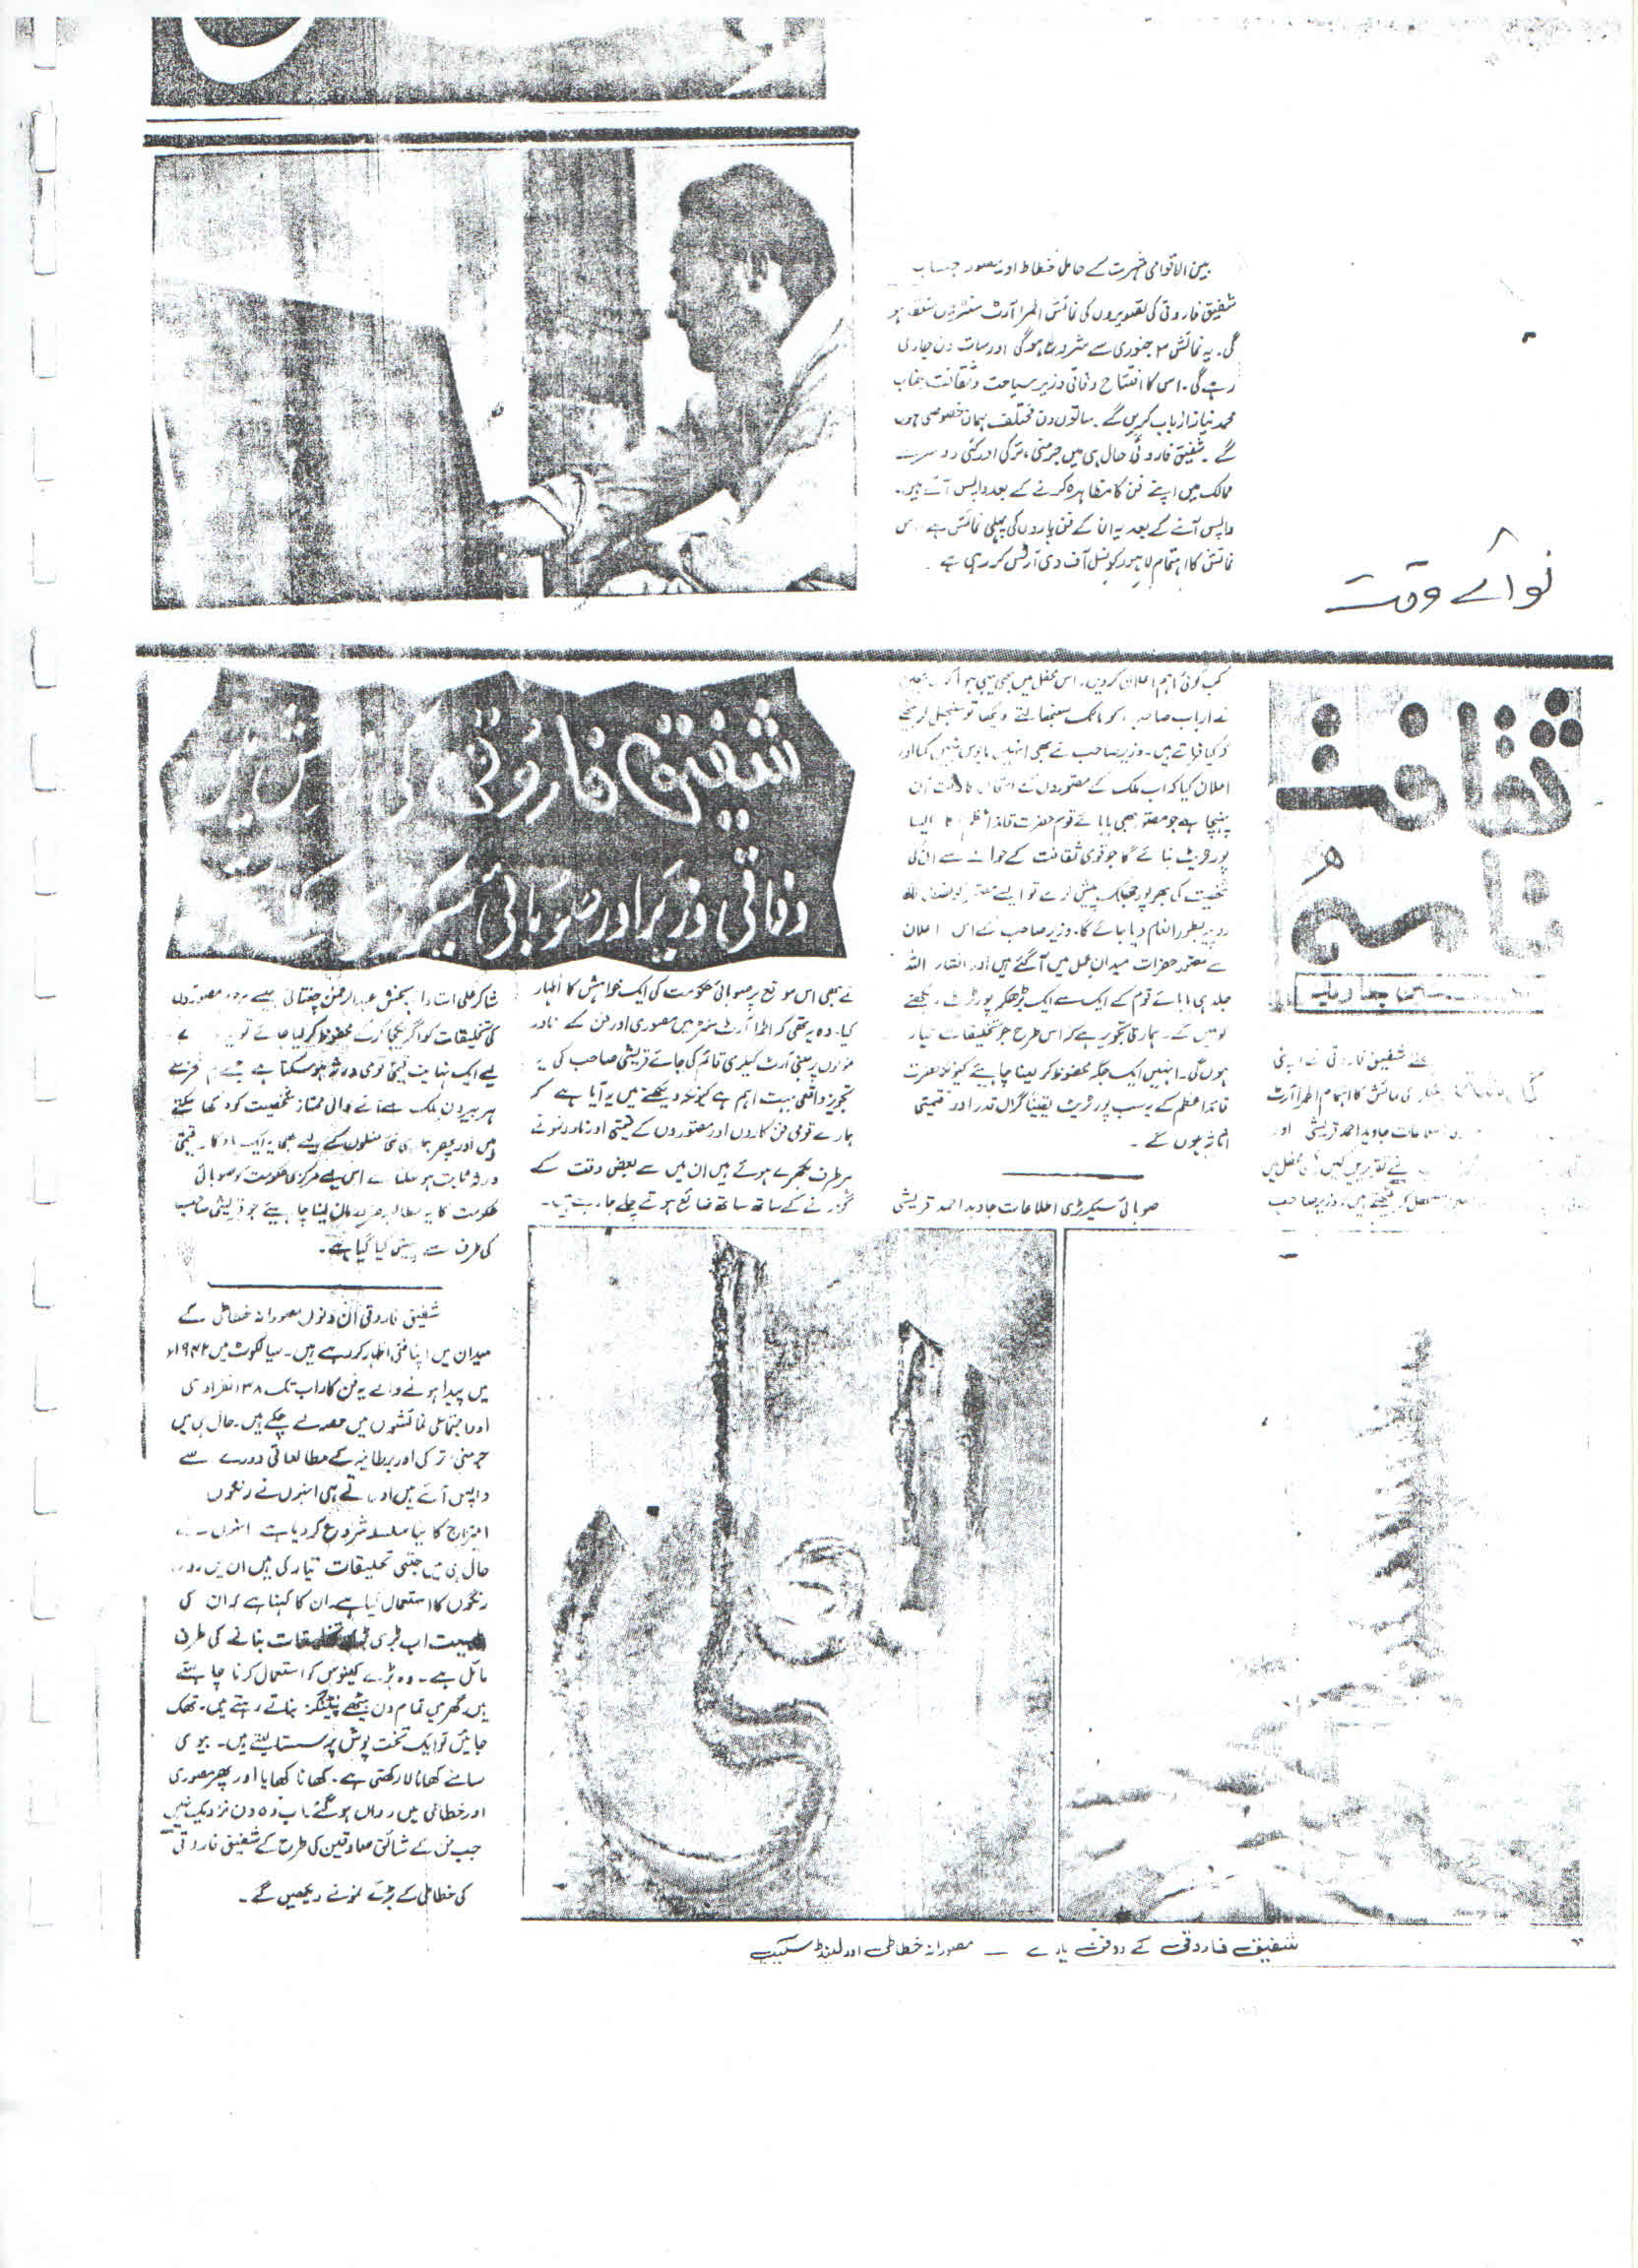 بین الاقوامی شہرت کے حامل خطاط اور مصور جناب
شفیق فاروقی کی تصویروں کی نمائش الحمرا آرٹ سنٹر میں منعقد ہو
گی۔ یہ نمائش ۳ جنوری سے شروع ہوگی اور سات دن جاری
رہے گی۔ اس کا افتتاح وفاقی وزیر سیاحت و ثقافت جناب
محمد نیاز ارباب کریں گے۔ ساتوں دن مختلف مہمان خصوصی ہوں
گے۔ شفیق فاروقی حال ہی میں جرمنی، ترکی اور کئی دوسرے
ممالک میں اپنے فن کا مظاہرہ کرنے کے بعد واپس آئے ہیں۔
واپس آنے کے بعد یہ ان کے فن پاروں کی پہلی نمائش ہے۔ اس
نمائش کا اہتمام لاہور کونسل آف دی آرٹس کر رہی ہے۔
نوائے وقت
ثقافت
نامہ
شفیق فاروقی کی
وفاقی وزیر اور صوبائی سیکرٹری
شفیق فاروقی نے اپنی
نمائش کا اہتمام الحمرا آرٹ
جاوید احمد قریشی اور
نے تقریریں کیں
وزیر صاحب
کب کوئی اہم اعلان کر دیں۔ اس محفل میں بھی یہی ہوا
نے ارباب صاحب کو مائک سنبھالتے دیکھا تو سنبھل کر بیٹھے
کہ کیا فرماتے ہیں۔ وزیر صاحب نے بھی انہیں مایوس نہیں کیا اور
اعلان کیا کہ اب ملک کے مصوروں کے امتحان کا وقت آن
پہنچا ہے جو مصور بھی بابائے قوم حضرت قائد اعظم کا ایسا
پورٹریٹ بنائے گا جو قومی ثقافت کے حوالے سے ان کی
شخصیت کی بھرپور جھلک پیش کرے تو ایسے مصور کو
روپیہ بطور انعام دیا جائے گا۔ وزیر صاحب کے اس اعلان
سے مصور حضرات میدان عمل میں آ گئے ہیں اور انشاء اللہ
جلد ہی بابائے قوم کے ایک سے ایک بڑھ کر پورٹریٹ دیکھنے
کو ملیں گے۔ ہماری تجویز ہے کہ اس طرح جو تخلیقات تیار
ہوں گی۔ انہیں ایک جگہ محفوظ کر لینا چاہیئے کیونکہ حضرت
قائد اعظم کے یہ سب پورٹریٹ یقیناً گراں قدر اور قیمتی
اثاثہ ہوں گے۔
صوبائی سیکرٹری اطلاعات جاوید احمد قریشی
نے بھی اس موقع پر صوبائی حکومت کی ایک خواہش کا اظہار
کیا۔ وہ یہ تھی کہ الحمرا آرٹ سنٹر میں مصوری اور فن کے نادر
نمونوں پر مبنی آرٹ گیلری قائم کی جائے قریشی صاحب کی یہ
تجویز واقعی بہت اہم ہے کیونکہ دیکھنے میں یہ آیا ہے کہ
ہمارے قومی فن کاروں اور مصوروں کے قیمتی اور نادر نمونے
ہر طرف بکھرے ہوئے ہیں ان میں سے بعض وقت کے
گزرنے کے ساتھ ساتھ ضائع ہوتے چلے جا رہے ہیں۔
شاکر علی استاد اللہ بخش عبدالرحمٰن چغتائی جیسے مصوروں
کی تخلیقات کو اگر یکجا کر کے محفوظ کر لیا جائے تو یہ
لیے ایک نہایت قیمتی قومی ورثہ ہو سکتا ہے جسے ہم فخر سے
ہر بیرون ملک سے آنے والی ممتاز شخصیت کو دکھا سکتے
ہیں اور پھر ہماری نئی نسلوں کے لیے بھی یہ ایک یادگار قیمتی
ورثہ ثابت ہو سکتا ہے اس لیے مرکزی حکومت کو صوبائی
حکومت کا یہ مطالبہ مان لینا چاہیئے جو قریشی صاحب
کی طرف سے پیش کیا گیا ہے۔
شفیق فاروقی ان دنوں مصورانہ خطاطی کے
میدان میں اپنا فنی اظہار کر رہے ہیں۔ سیالکوٹ میں ۱۹۴۲ء
میں پیدا ہونے والے یہ فن کار اب تک ۱۳۸ انفرادی
اور اجتماعی نمائشوں میں حصہ لے چکے ہیں۔ حال ہی میں
جرمنی، ترکی اور برطانیہ کے مطالعاتی دورے سے
واپس آئے ہیں اور آتے ہی انہوں نے رنگوں
امتزاج کا نیا سلسلہ شروع کر دیا ہے انہوں نے
حال ہی میں جتنی تخلیقات تیار کی ہیں ان میں
رنگوں کا استعمال کیا ہے۔ ان کا کہنا ہے کہ ان کی
طبیعت اب بڑی بڑی تخلیقات بنانے کی طرف
مائل ہے۔ وہ بڑے کینوس کو استعمال کرنا چاہتے
ہیں۔ گھر میں تمام دن بیٹھے پینٹنگز بناتے رہتے ہیں۔ تھک
جائیں تو ایک تخت پوش پر سستا لیتے ہیں۔ بیوی
سامنے کھانا لا رکھتی ہے۔ کھانا کھایا اور پھر مصوری
اور خطاطی میں رواں ہو گئے۔ اب وہ دن نزدیک نہیں
جب فن کے شائق صادقین کی طرح کے شفیق فاروقی
کی خطاطی کے بڑے نمونے دیکھیں گے۔
شفیق فاروقی کے دو فن پارے — مصورانہ خطاطی اور لینڈ سکیپ